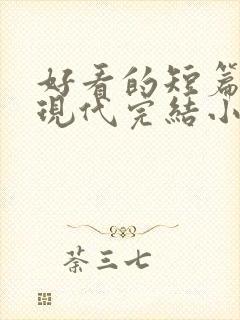 好看的短篇
現代完結小
荼三七